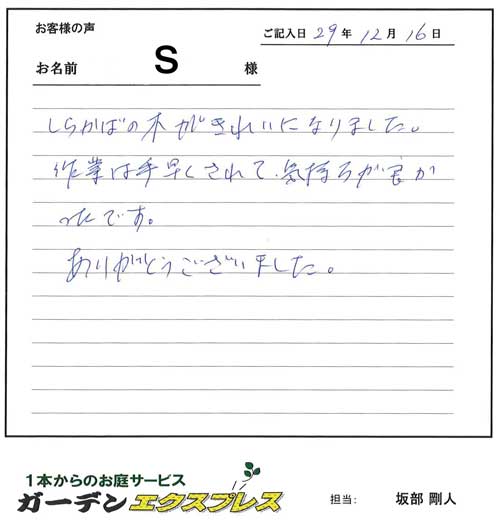 お客様の声
ご記入日 29年 12月 16日
お名前 S 様
しらかばの木がきれいになりました。
作業は手早くされて、気持ちが良か
ったです。
ありがとうございました。
1本からのお庭サービス
ガーデンエクスプレス
担当: 坂部 剛人